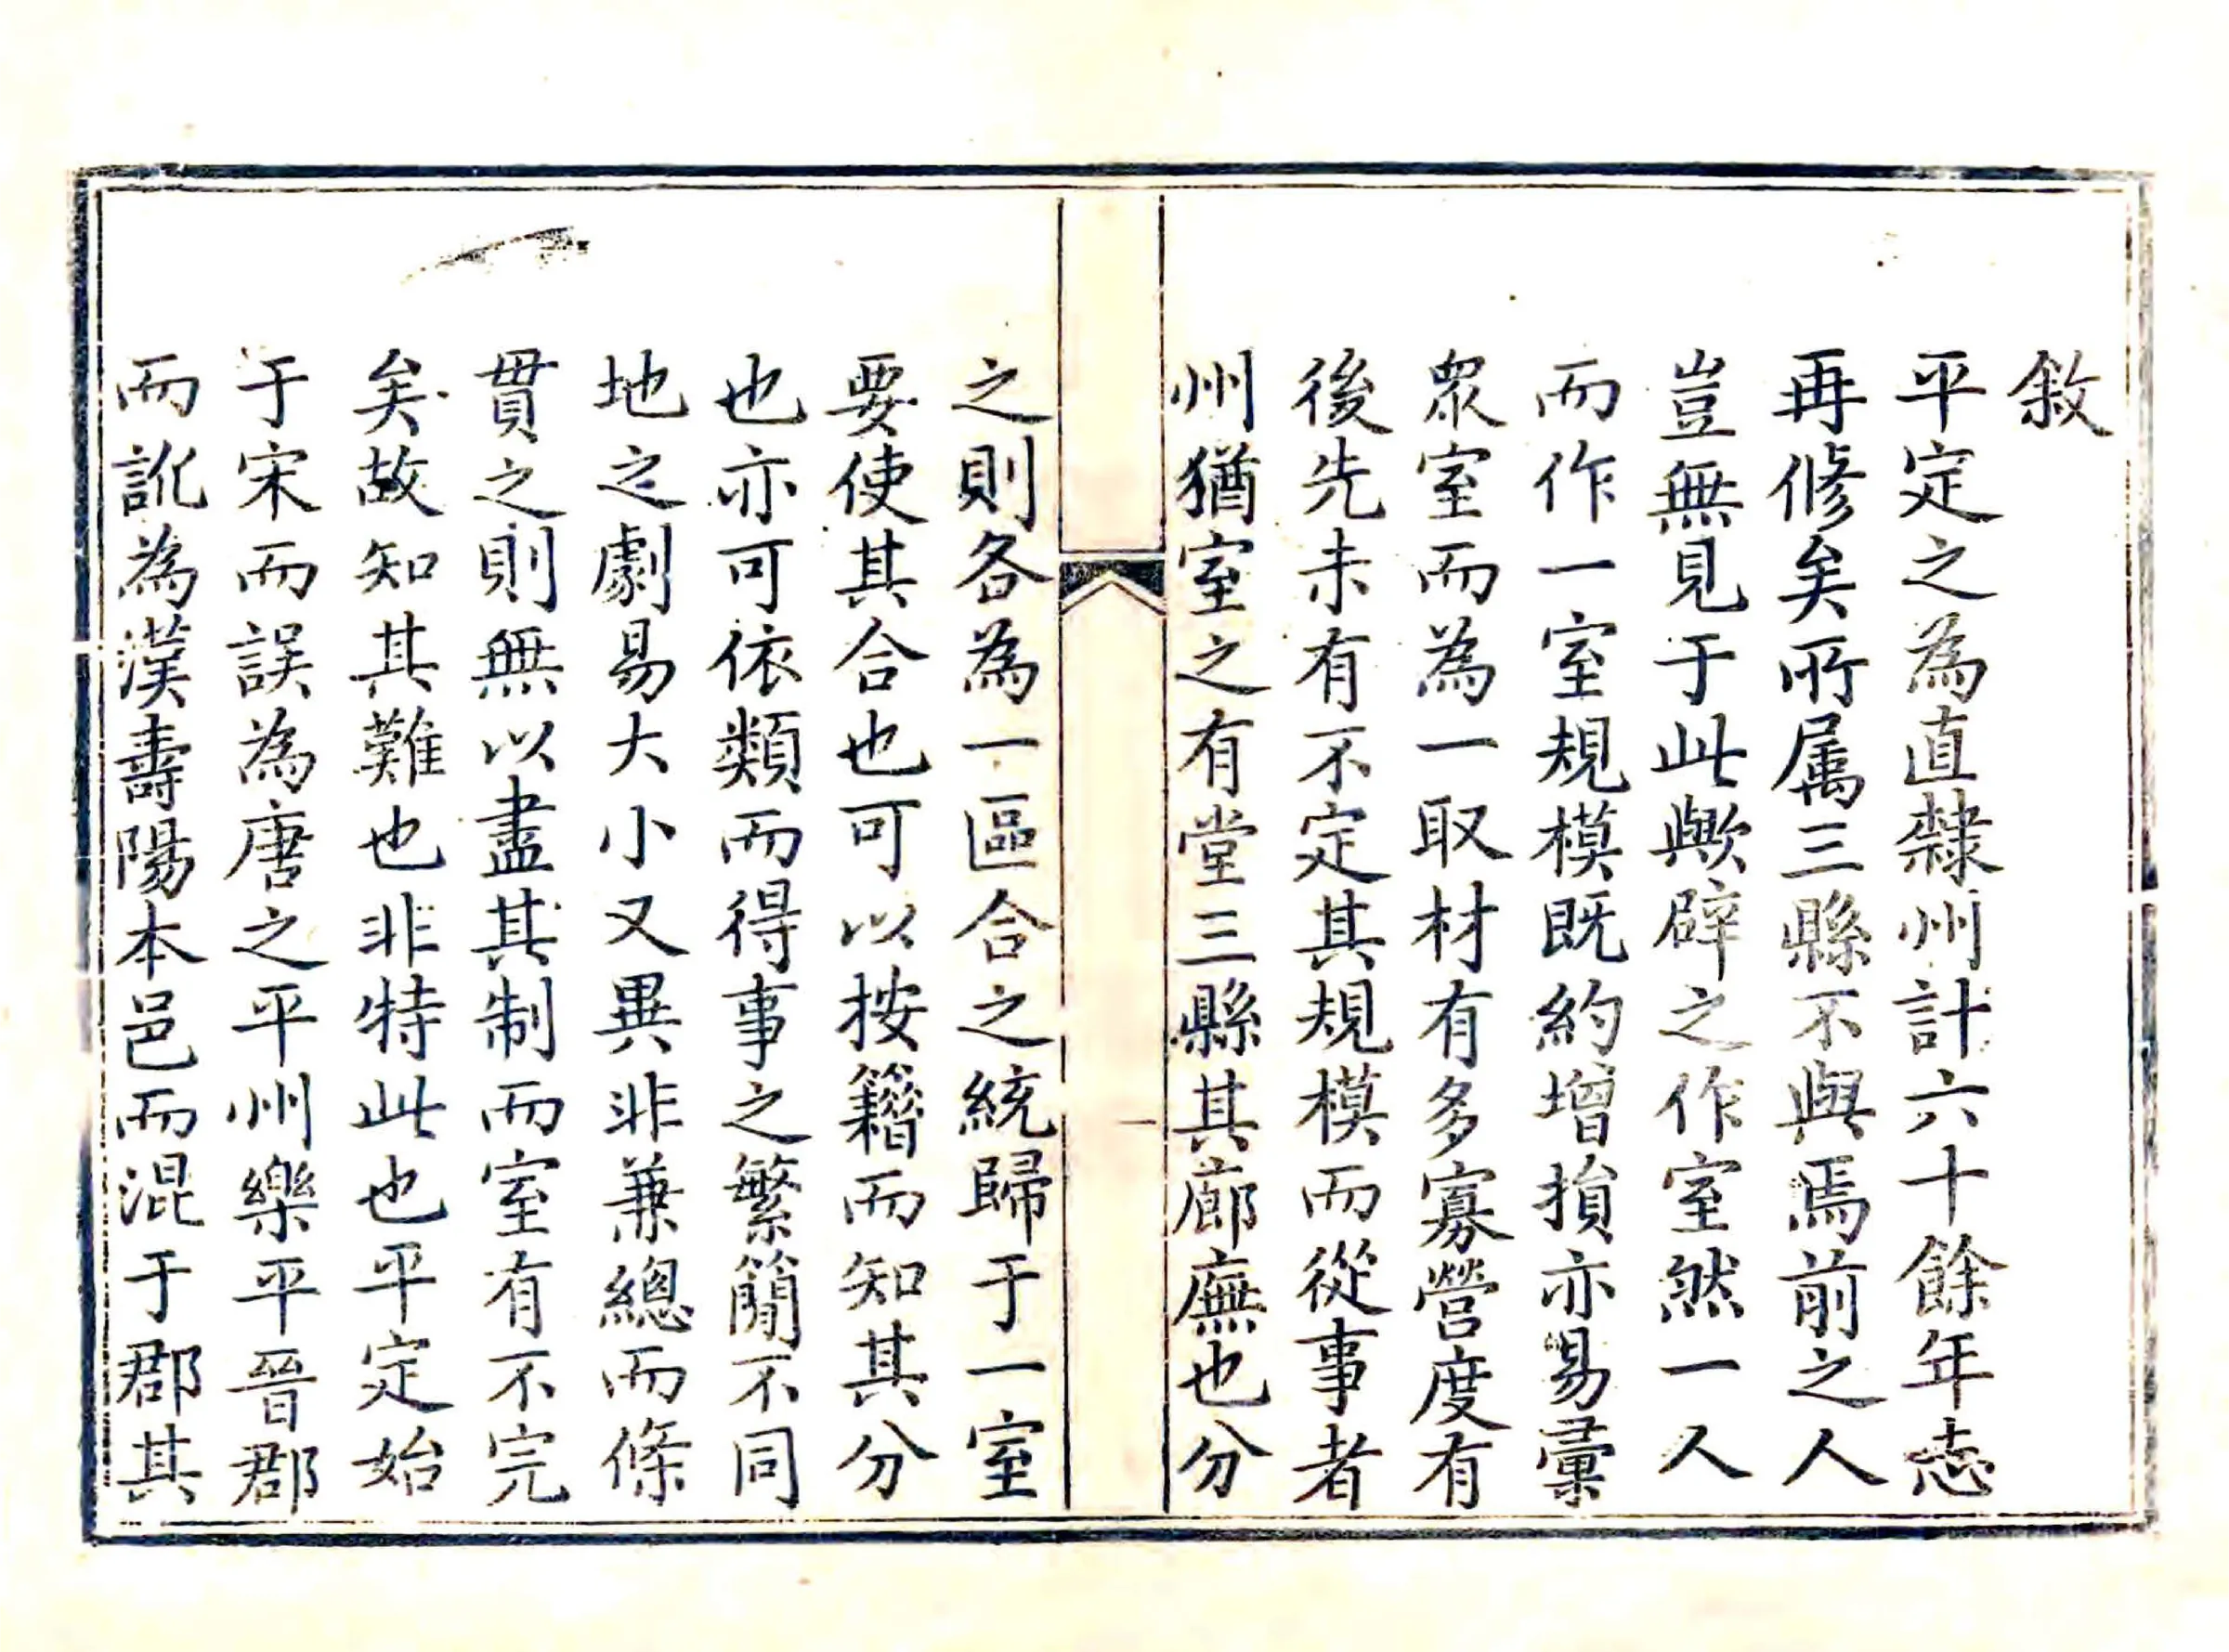 敘
平定之為直隸州計六十餘年志
再修矣所属三縣不與焉前之人
豈無見于此歟辟之作室然一人
而作一室規模既約增損亦易彙
眾室而為一取材有多寡營度有
後先未有不定其規模而從事者
州猶室之有堂三縣其廊廡也分
之則各為一區合之統歸于一室
要使其合也可以按籍而知其分
也亦可依類而得事之繁簡不同
地之劇易大小又異非兼總而條
貫之則無以盡其制而室有不完
矣故知其難也非特此也平定始
于宋而誤為唐之平州樂平晉郡
而訛為漢壽陽本邑而混于郡其
一